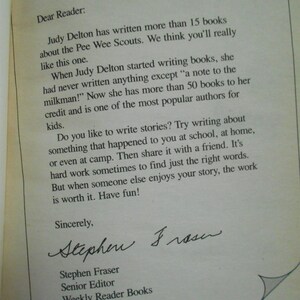 Dear Reader:
Judy Delton has written more than 15 books
about the Pee Wee Scouts. We think you'll really
like this one.
When Judy Delton started writing books, she
had never written anything except "a note to the
milkman!" Now she has more than 50 books to her
credit and is one of the most popular authors for
kids.
Do you like to write stories? Try writing about
something that happened to you at school, at home,
or even at camp. Then share it with a friend. It's
hard work sometimes to find just the right words.
But when someone else enjoys your story, the work
is worth it. Have fun!
Sincerely,
Stephen Fraser
Stephen Fraser
Senior Editor
Weekly Reader Books